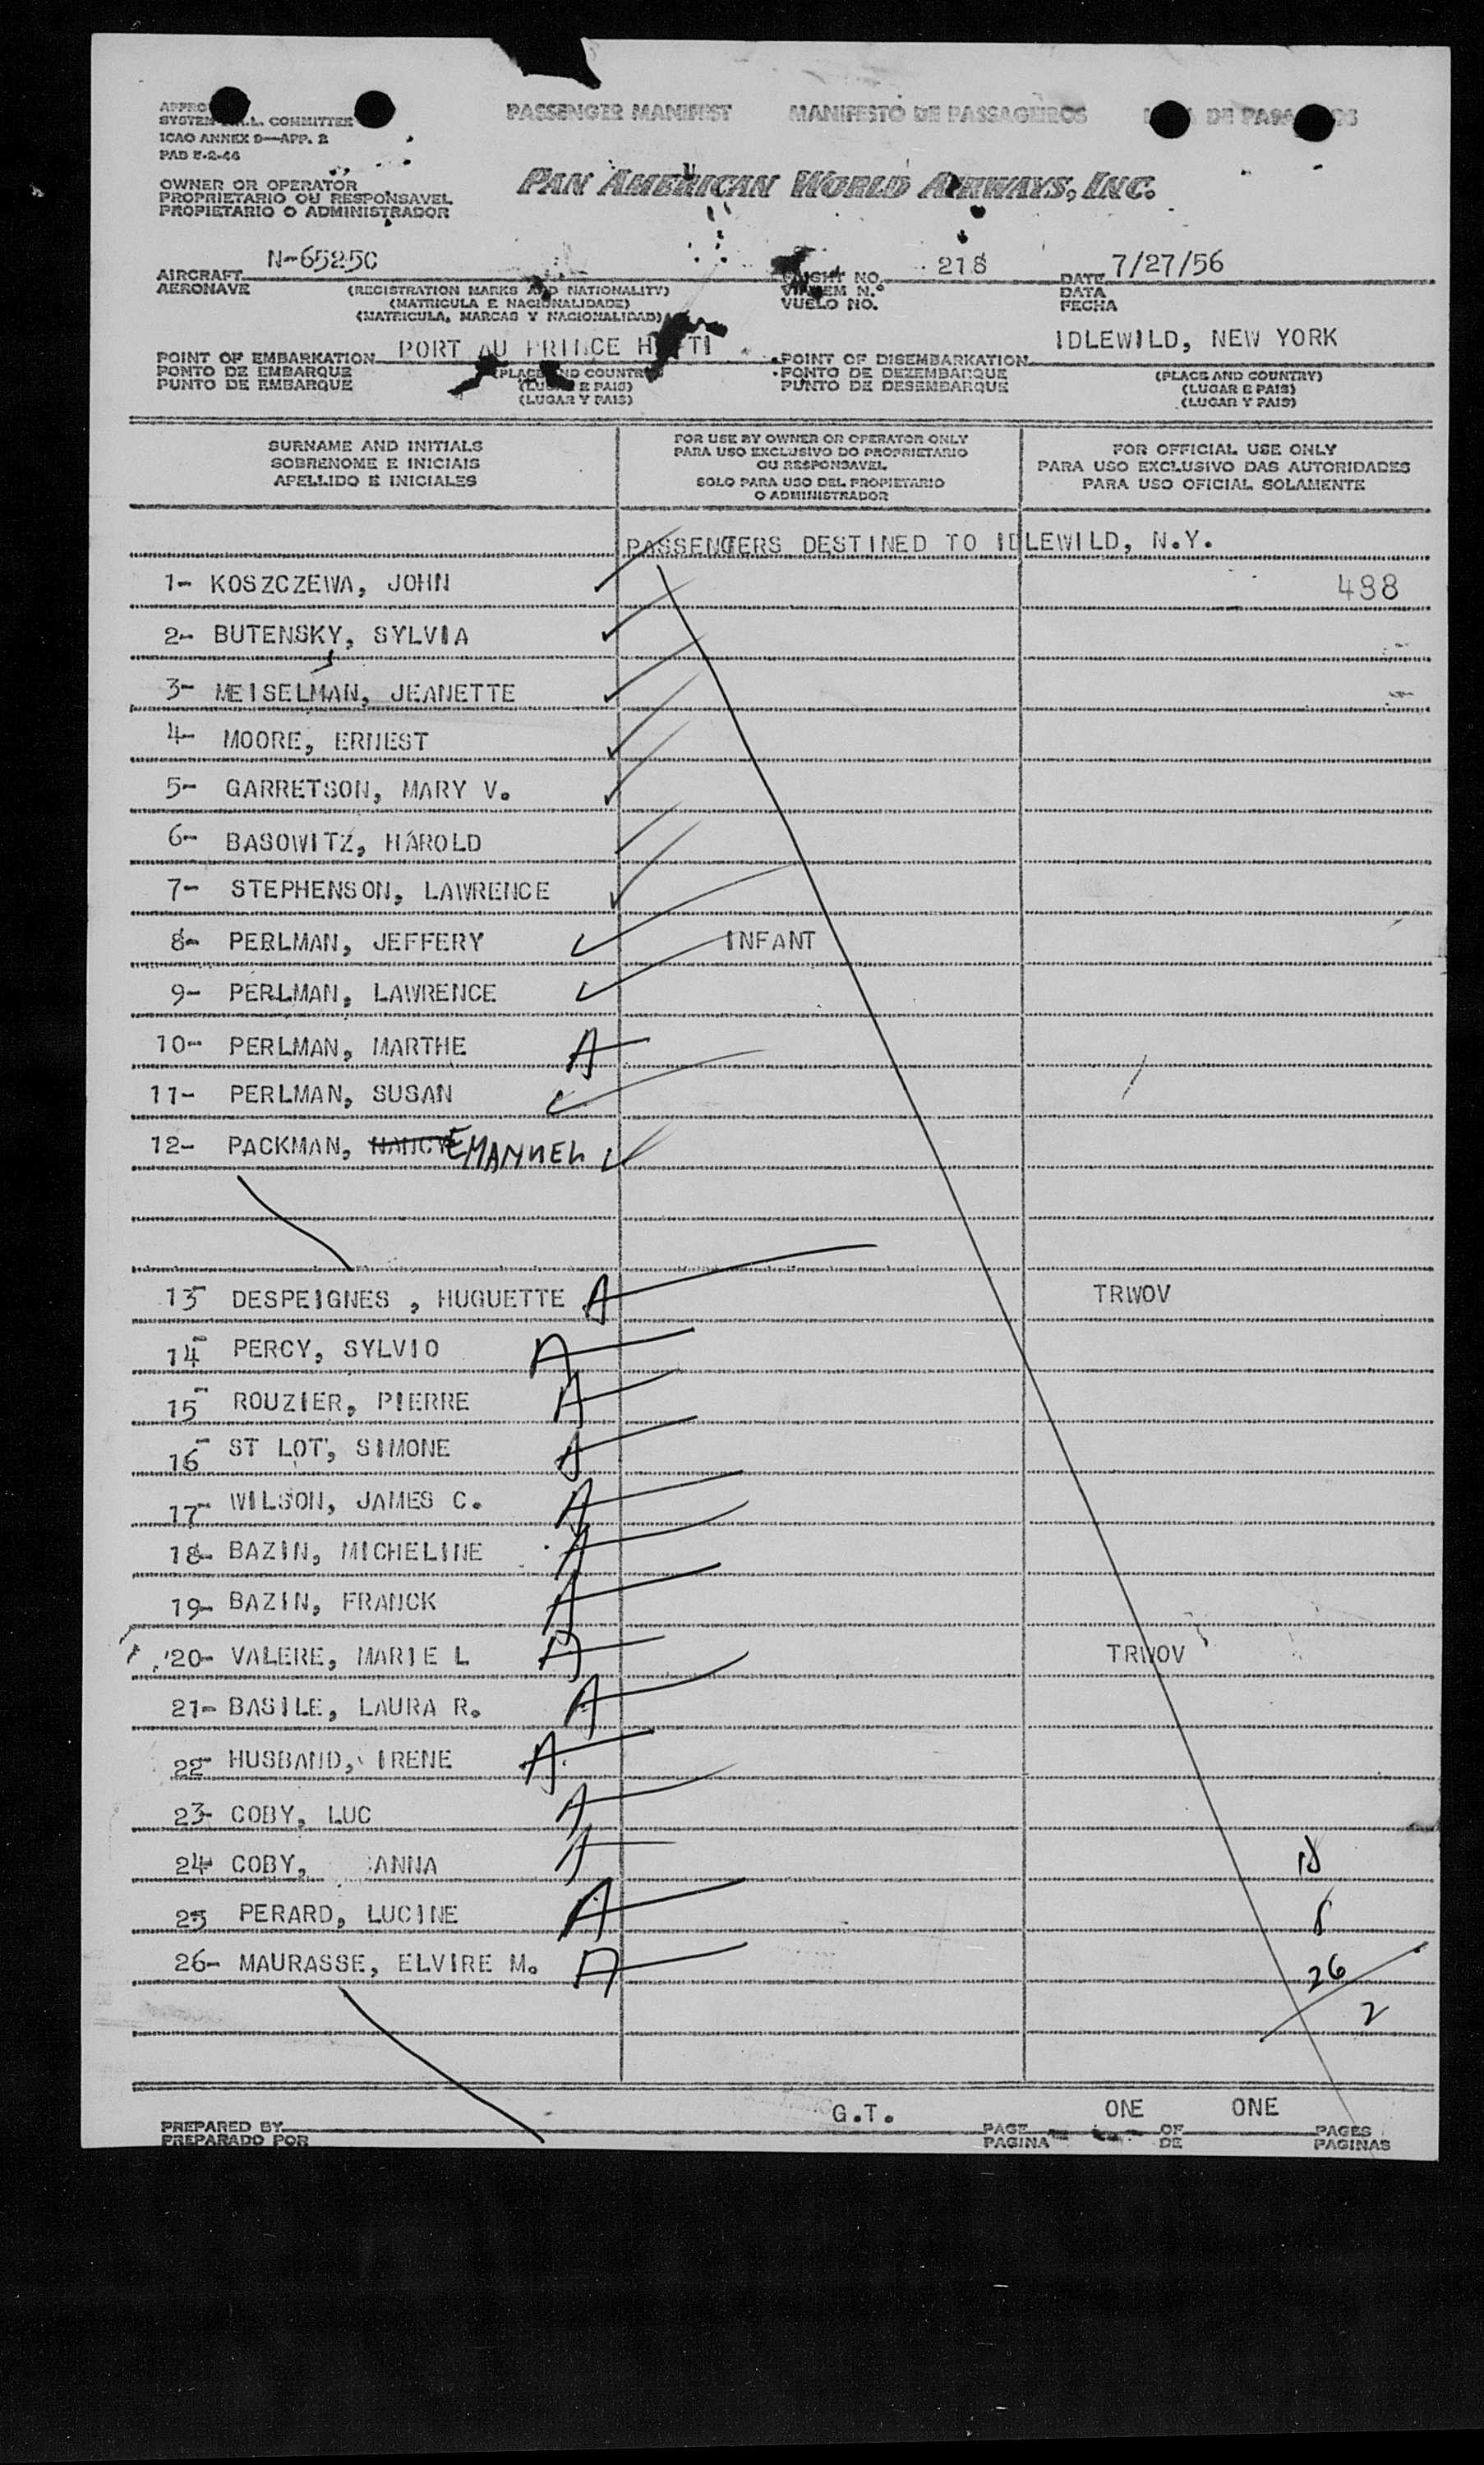 PASSENGER MANIFEST MANIFESTO DE PASSAGEIROS DE
SYSTEM COMMITTEE
ICAO ANNEX 9—APP. 2
PAD 5-2-46
OWNER OR OPERATOR
PROPRIETARIO OU RESPONSAVEL
PROPIETARIO O ADMINISTRADOR
PAN AMERICAN WORLD AIRWAYS, INC.
AIRCRAFT N-6525C FLIGHT NO. 218 DATE 7/27/56
AERONAVE (REGISTRATION MARKS AND NATIONALITY) VIAGEM N.º DATA
(MATRICULA E NACIONALIDADE) VUELO NO. FECHA
(MATRICULA, MARCAS Y NACIONALIDAD)
POINT OF EMBARKATION PORT AU PRINCE HAITI POINT OF DISEMBARKATION IDLEWILD, NEW YORK
PONTO DE EMBARQUE (PLACE AND COUNTRY) PONTO DE DEZEMBARQUE (PLACE AND COUNTRY)
PUNTO DE EMBARQUE (LUGAR E PAIS) PUNTO DE DESEMBARQUE (LUGAR E PAIS)
(LUGAR Y PAIS) (LUGAR Y PAIS)
SURNAME AND INITIALS
SOBRENOME E INICIAIS
APELLIDO E INICIALES
FOR USE BY OWNER OR OPERATOR ONLY
PARA USO EXCLUSIVO DO PROPRIETARIO
OU RESPONSAVEL
SOLO PARA USO DEL PROPIETARIO
O ADMINISTRADOR
FOR OFFICIAL USE ONLY
PARA USO EXCLUSIVO DAS AUTORIDADES
PARA USO OFICIAL SOLAMENTE
PASSENGERS DESTINED TO IDLEWILD, N.Y.
1- KOSZCZEWA, JOHN 488
2- BUTENSKY, SYLVIA
3- MEISELMAN, JEANETTE
4- MOORE, ERNEST
5- GARRETSON, MARY V.
6- BASOWITZ, HAROLD
7- STEPHENSON, LAWRENCE
8- PERLMAN, JEFFERY INFANT
9- PERLMAN, LAWRENCE
10- PERLMAN, MARTHE A
11- PERLMAN, SUSAN
12- PACKMAN, NANCY EMANUEL
13- DESPEIGNES , HUGUETTE A TRWOV
14- PERCY, SYLVIO A
15- ROUZIER, PIERRE A
16- ST LOT, SIMONE A
17- WILSON, JAMES C. A
18- BAZIN, MICHELINE A
19- BAZIN, FRANCK A
20- VALERE, MARIE L A TRWOV
21- BASILE, LAURA R. A
22- HUSBAND, IRENE A
23- COBY, LUC A
24- COBY, ANNA A
25 PERARD, LUCINE A
26- MAURASSE, ELVIRE M. A 26
2
G.T. ONE ONE
PREPARED BY PAGE OF PAGES
PREPARADO POR PAGINA DE PAGINAS